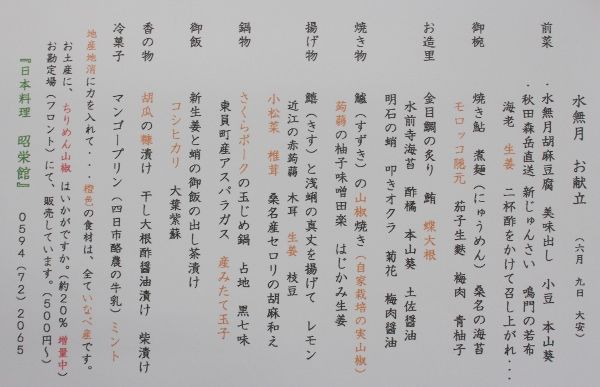 水無月 お献立 (六月 九日 大安)
前菜 ・水無月胡麻豆腐 美味出し 小豆 本山葵
・秋田森岳直送 新じゅんさい 鳴門の若布
海老 生姜 二杯酢をかけて召し上がれ・・・
御椀 焼き鮎 煮麺(にゅうめん) 桑名の海苔
モロッコ隠元 茄子生麩 梅肉 青柚子
お造里 金目鯛の炙り 鮪 蝶大根
水前寺海苔 酢橘 本山葵 土佐醤油
明石の蛸 叩きオクラ 菊花 梅肉醤油
焼き物 鱸(すずき)の山椒焼き(自家栽培の実山椒)
蒟蒻の柚子味噌田楽 はじかみ生姜
揚げ物 鱚(きす)と浅蜊の真丈を揚げて レモン
近江の赤蒟蒻 木耳 生姜 枝豆
小松菜 椎茸 桑名産セロリの胡麻和え
鍋物 さくらポークの玉じめ鍋 占地 黒七味
東員町産アスパラガス 産みたて玉子
御飯 新生姜と蛸の御飯の出し茶漬け
コシヒカリ 大葉紫蘇
香の物 胡瓜の糠漬け 干し大根酢醤油漬け 柴漬け
冷菓子 マンゴープリン(四日市酪農の牛乳) ミント
地産地消に力を入れて・・・橙色の食材は、全ていなべ産です。
お土産に、ちりめん山椒 はいかがですか。(約20% 増量中)
お勘定場(フロント)にて、販売しています。(500円~)
『日本料理 昭栄館』 0594(72)2065